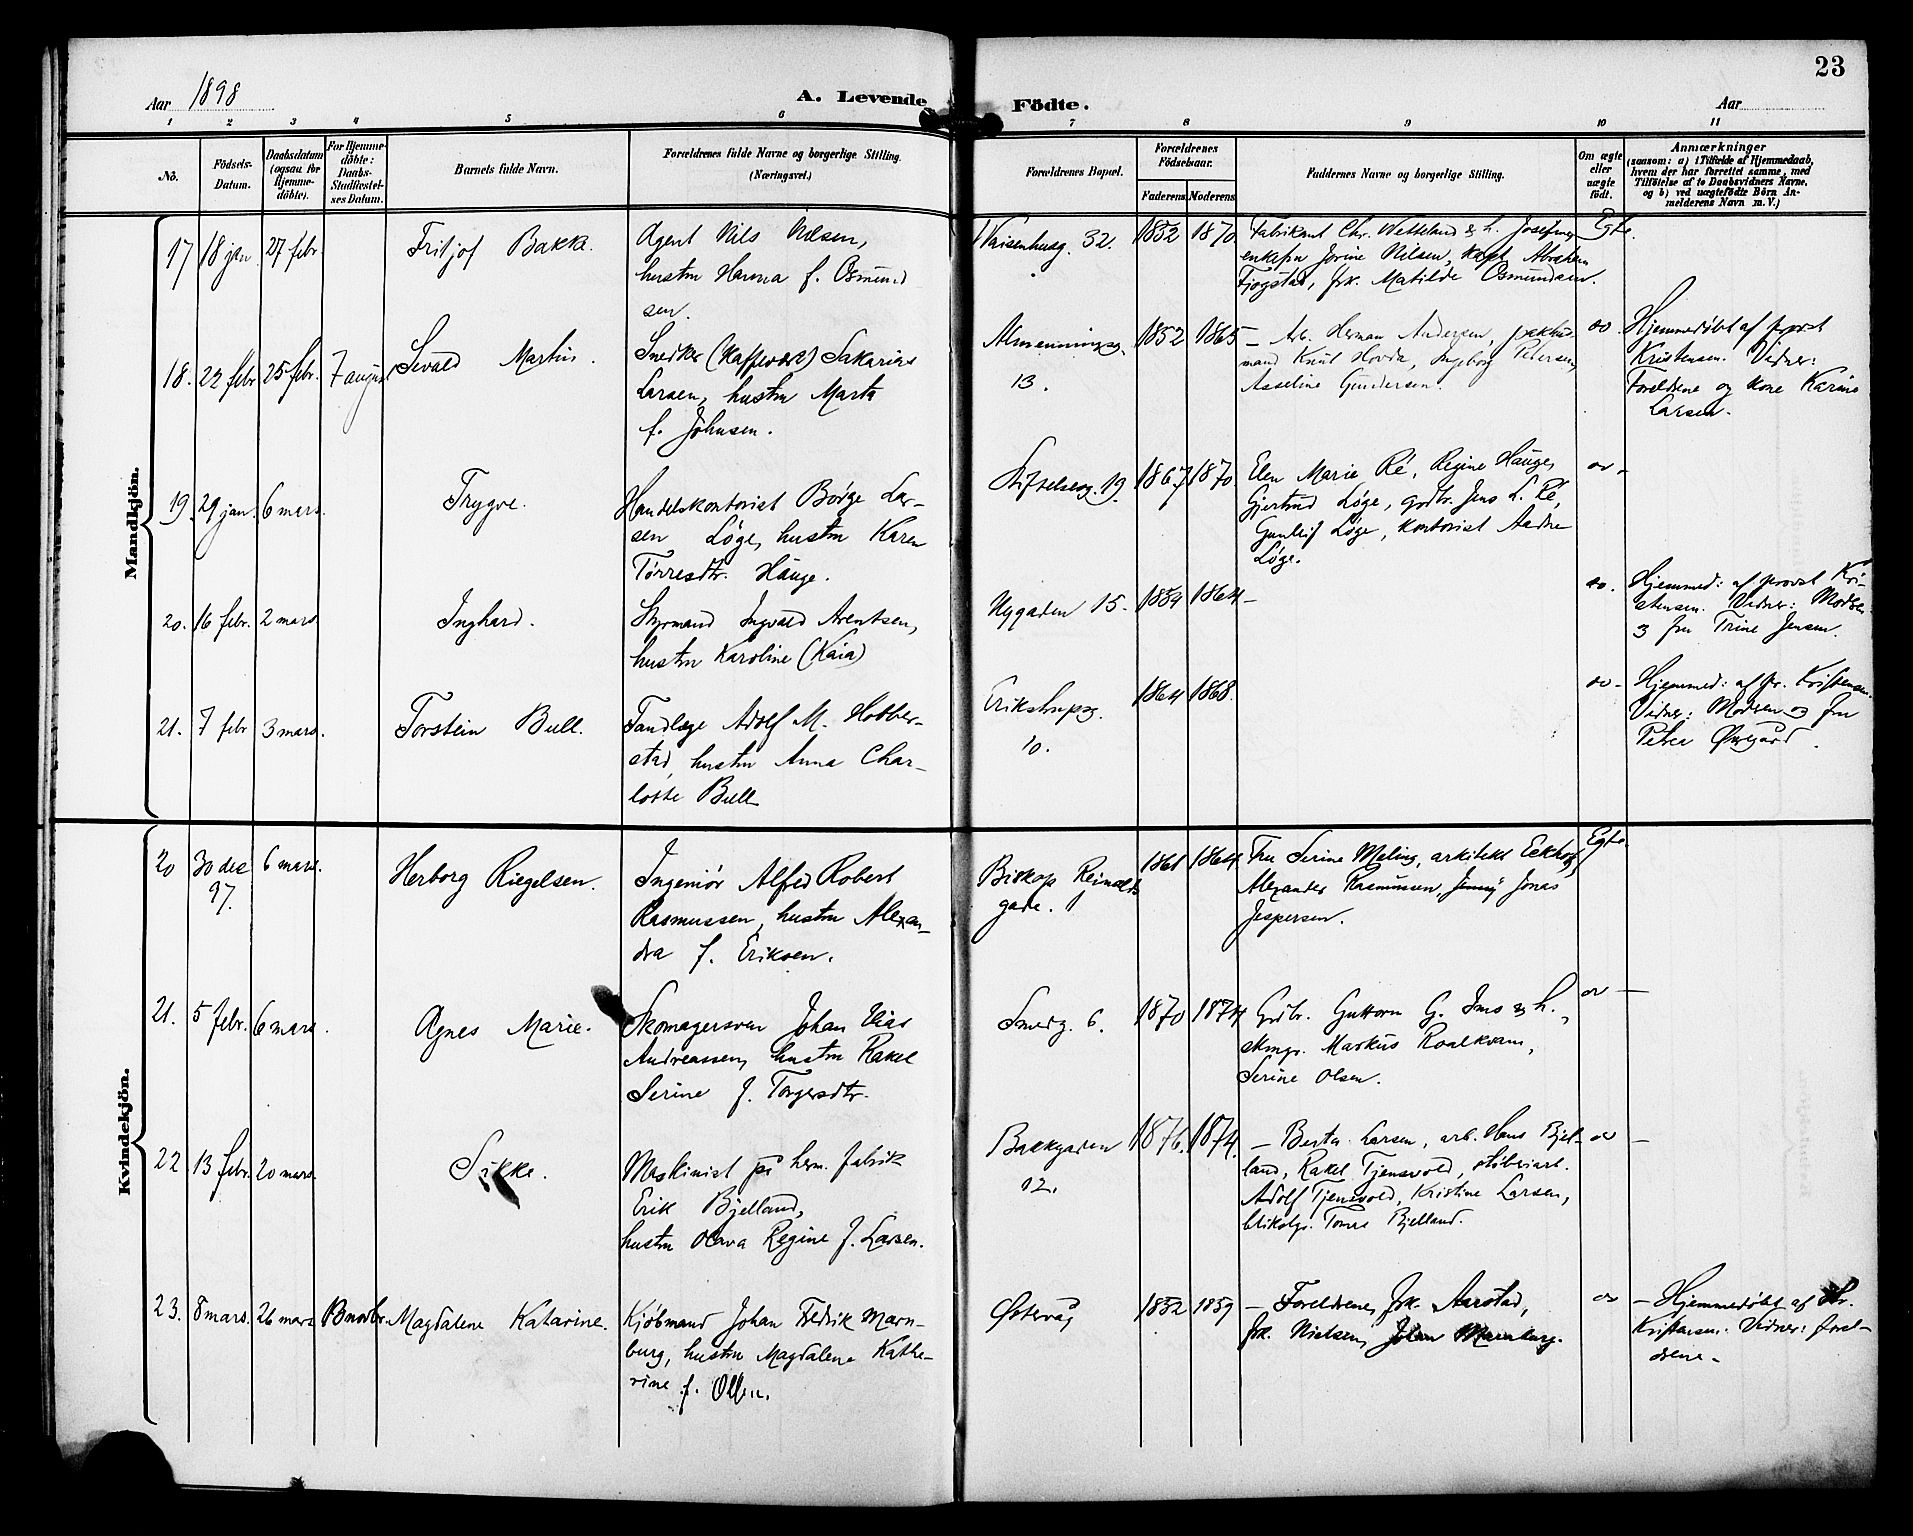 23
Aar 1898
A. Levende Födte.
Aar
1 2 3 4 5 6 7 8 9 10 11
No.
Födsels-
Datum.
Daabsdatum
(ogsaa for
Hjemme-
döbte).
For Hjemme-
döbte:
Daabs-
Stadfæstel-
ses Datum.
Barnets fulde Navn.
Forældrenes fulde Navne og borgerlige Stilling.
(Næringsvei.)
Forældrenes Bopæl.
Forældrenes
Födselsaar.
Faderens Moderens
Faddernes Navne og borgerlige Stilling.
Om ægte
eller
uægte
födt.
Anmærkninger
(saasom: a) i Tilfælde af Hjemmedaab,
hvem der har forrettet samme, med
Tilföielse af to Daabsvidners Navne,
og b) ved uægtefödte Börn An-
melderens Navn m. V.)
Mandkjön.
17 18 jan. 27 febr.
Fritjof Bakke.
Agent Nils Nilsen,
hustru Hanna f. Osmund
sen.
Vaisenhusg. 32.
1852 1870
Fabrikant Chr. Vetteland & h. Josefine,
enkefru Jorine Nilsen, Kapt. Abraham
Fjogstad, frk. Matilde Osmundsen.
Egte.
18. 22 febr 25 febr. 7 august
Sevald Martin.
Snedker (Kaffevært) Sakarias
Larsen, hustru Marta
f. Johnsen.
Almenningsg.
13.
1852 1865
– Arb. Herman Andersen, pakhus
mand Knut Hovda, Ingeborg Petersen,
Asseline Gundersen.
do
Hjemmedøbt af provst
Kristensen. Vidner:
Foreldrene og kone Karine
Larsen.
19. 29 jan. 6 mars.
Trygve.
Handelskontorist Børge Lar-
sen Løge, hustru Karen
Tørresdtr. Hauge.
Stiftelsesg. 19
1867 1870
Elen Marie Ré, Regine Hauge,
Gjertrud Løge, grdbr. Jens L. Ré,
Gunleif Løge, kontorist Aadne
Løge.
do –
20. 16 febr. 2 mars
Inghard.
Styrmand Ingvald Arentsen,
hustru Karoline (Kaia)
Nygaden 15.
1859 1864 –
do.
Hjemmed: af provst Kri-
stensen. Vidner: Modren
& fru Trine Jensen.
21. 7 febr 3 mars.
Torstein Bull.
Tandlæge Adolf M. Hobber-
stad, hustru Anna Char-
lotte Bull
Erikstrupsg.
10.
1864 1868.
do –
Hjemmed: af pr. Kristensen.
Vidner: Modren og fru
Petra
Kvindekjön.
20 30 dec 6 mars.
97.
Herborg Riegelsen.
Ingeniør Alfred Robert
Rasmussen, hustru Alexan-
dra f. Eriksen.
Biskop Reinalds
gade.
1861 1864.
Fru Serine Meling, arkitekt Eckhoff,
Alexander Rasmussen, Jenny Jonas
Jespersen.
Egte.
21. 5 febr. 6 mars.
Agnes Marie.
Skomagersven Johan Elias
Andreassen, hustru Rakel
Serine f. Torgersdtr.
Smedg. 6.
1870 1874
Grdbr. Guttorm G. Ims & h.,
skmgr. Markus Roalkvam,
Serine Olsen.
do –
22 13 febr. 20 mars.
Sikke.
Maskinist på herm. fabrik
Erik Bjelland,
hustru Olava Regine f. Larsen.
Bakkgaden
12.
1876. 1874.
– Berta Larsen, arb. Hans Bjel-
land, Rakel Tjensvold, støberiarb.
Adolf Tjensvold, Kristine Larsen,
bliksls. Tomas Bjelland.
do –
23. 8 mars. 26 mars
Magdalene Katarine.
Kjøbmand Johan Fredrik Marn-
burg, hustru Magdalene Kathe-
rine f. Olsen.
Østervåg
1852 1859
– Foreldrene, frk. Aarstad,
frk. Nielsen, Johan Marnburg.
do
– Hjemmedøbt af Pr.
Kristensen. Vidner: forel-
drene –